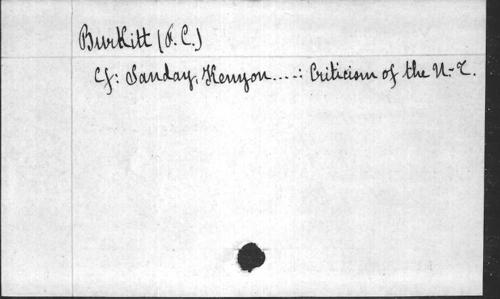 Burkitt (F. C.)
Cf: Sanday, Kenyon....: Criticism of the N.-T.